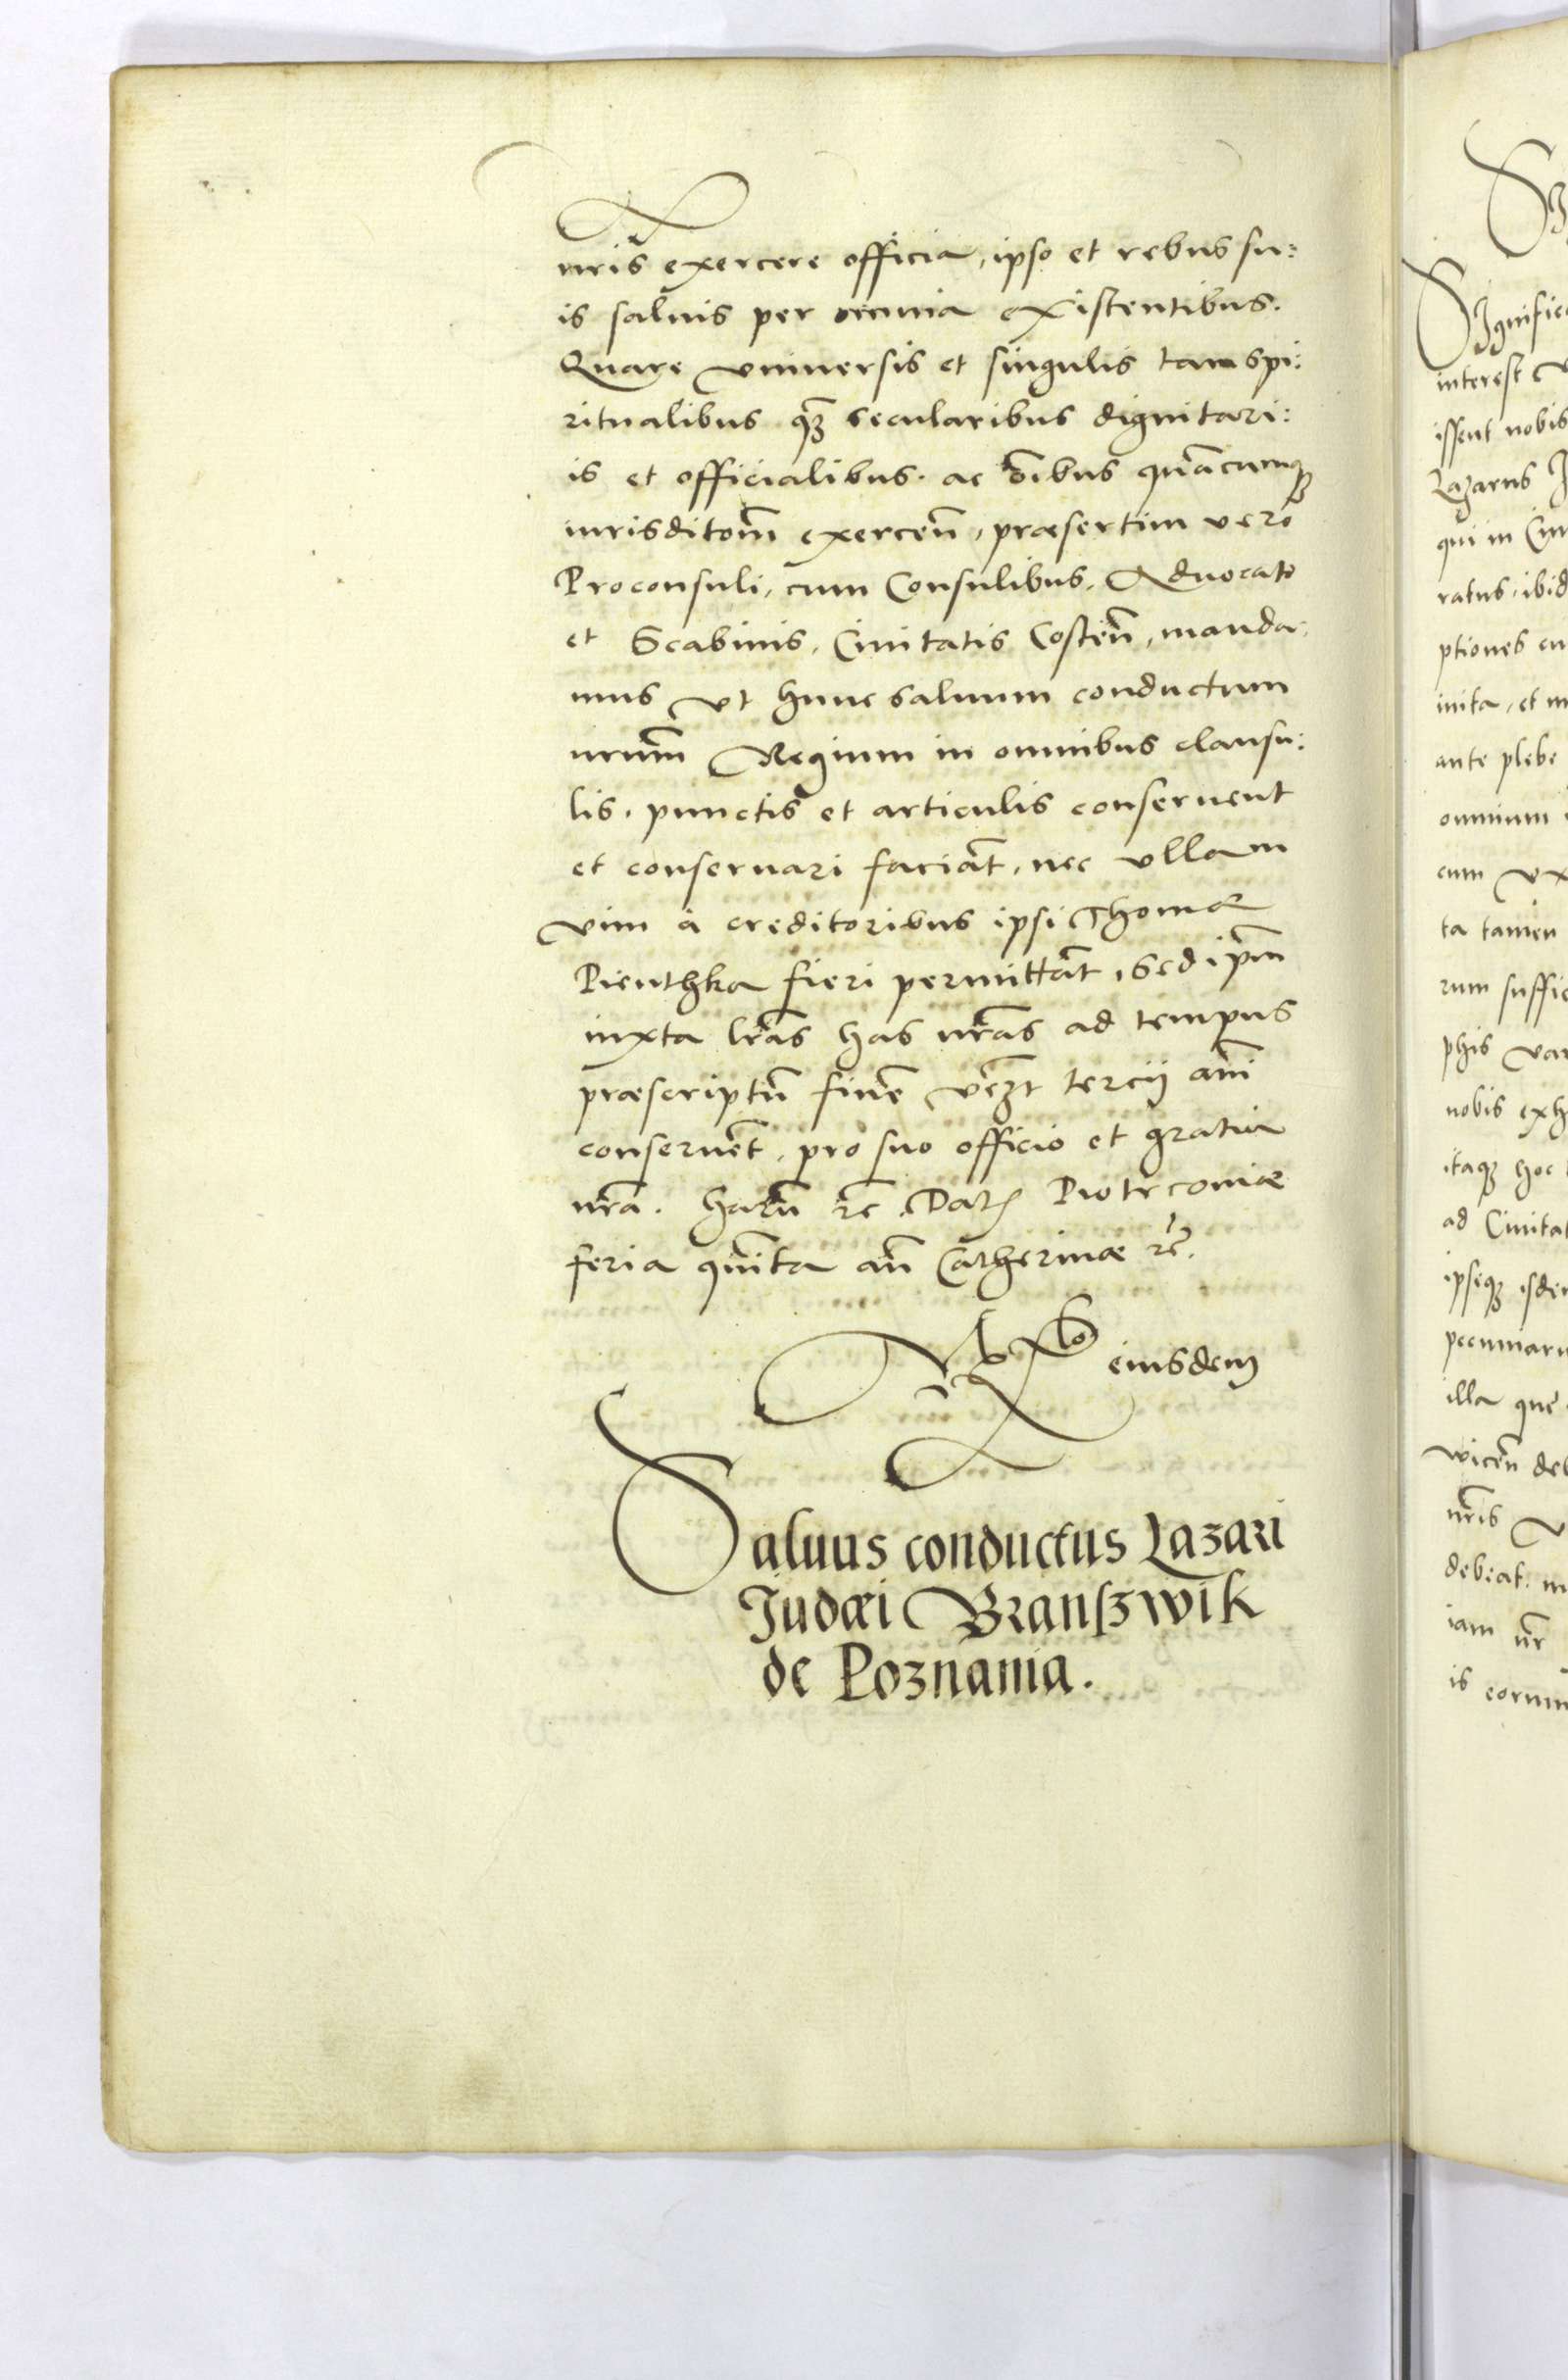 nris̃ exercere officia, ipso et rebus su:
is saluis per omnia existentibus.
Quare vniuersis et singulis tam spi:
ritualibus qȝ̃ secularibus dignitari:
is et officialibus. ac õibus quãcumqȝ
iurisditom̃ exercen̄, præsertim vero
Proconsuli, cum Consulibus, Aduocato
et Scabinis, Ciuitatis Costen̄, manda:
mus vt hunc saluum conductum
nrum̃ Regium in omnibus clausu:
lis, punctis et articulis conseruent
et conseruari faciãt, nec vllam
vim à creditoribus ipsi Thomæ
Pienthka fieri permittãt, Sed ipm̃
iuxta lrãs has nrãs ad tempus
præscriptũ finẽ vẽȝt tercij ãni
conseruẽt, pro suo officio et gratia
nrã. Harũ &c. Dat Piotrconiæ
feria quĩta añ Catherinæ &c.
eiusdem
Saluus conductus Lazari
Judæi Branszwik
de Poznania.
Signific
interest
issent nobis
Lazarus
qui in
ratus, ibid
ptiones
inita, et
ante plebe
omnium
cum
ta tamen
rum
phis
nobis exh
itaqȝ hoc
ad Ciuitat
ipseqȝ isdem
pecuniaru
illa que
wicen̄
nris̃
debeat.
iam nr̃
is eorum